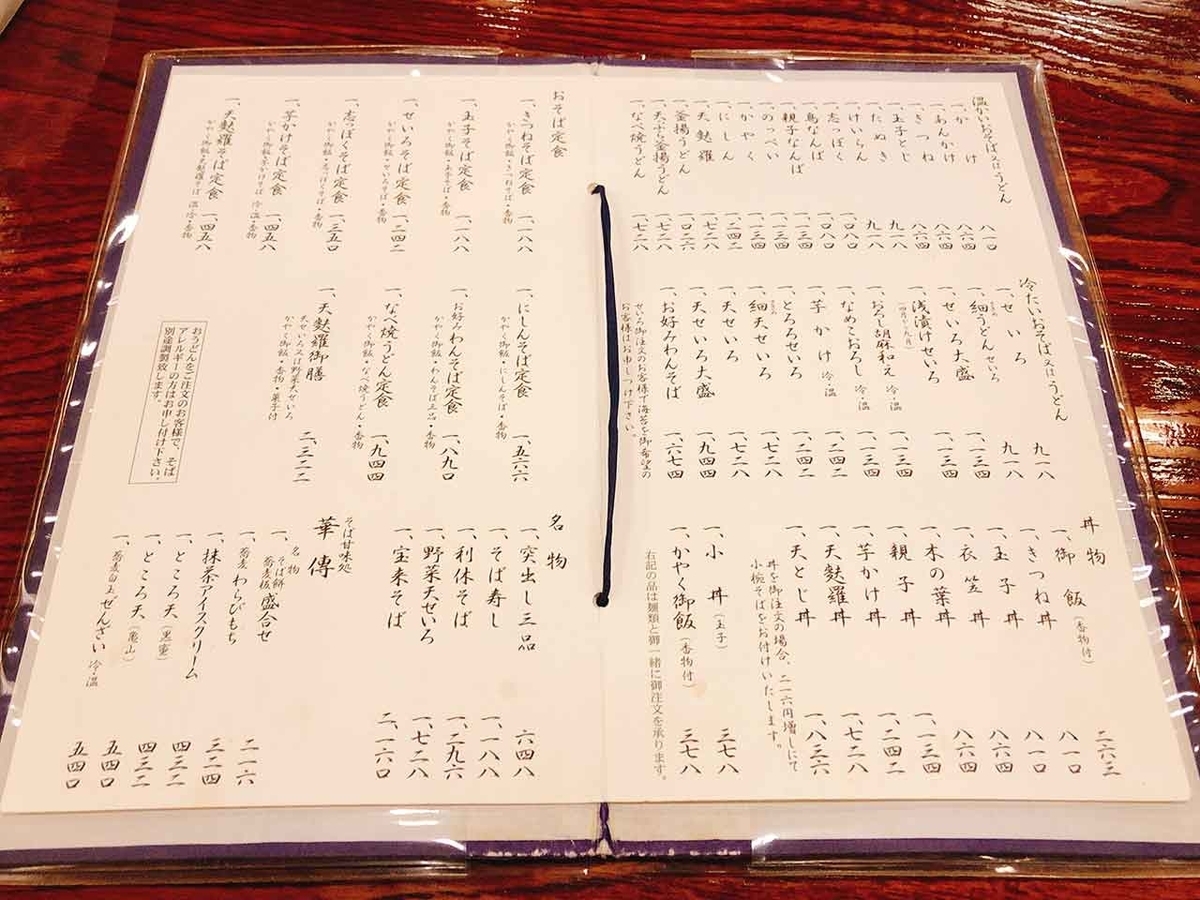 温かいおそば又はうどん
一、かけ 八一〇
一、あんかけ 八六四
一、きつね 八六四
一、玉子とじ 八六四
一、たぬき 九一八
一、けいらん 九一八
一、志っぽく 一、〇八〇
一、鳥なんば 一、〇八〇
一、親子なんば 一、一三四
一、のっぺい 一、一三四
一、かやく 一、一三四
一、にしん 一、二四二
一、天麩羅 一、七二八
一、釜揚うどん 一、〇二六
一、天ぷら釜揚うどん 一、七二八
一、なべ焼うどん 一、七二八
冷たいおそば又はうどん
一、せいろ 九一八
一、細うどんせいろ 九一八
一、せいろ大盛 一、一三四
一、浅漬けせいろ 一、一三四
一、おろし胡麻和え 冷・温 一、一三四
一、なめこおろし 冷・温 一、一三四
一、芋かけ 冷・温 一、二四二
一、とろろせいろ 一、二四二
一、細天せいろ 一、七二八
一、天せいろ 一、七二八
一、天せいろ大盛 一、九四四
一、お好みわんそば 一、六七四
せいろ御注文のお客様で海苔を御希望の
お客様はお申しつけ下さい。
丼物
一、御飯(香物付) 二六三
一、きつね丼 八一〇
一、玉子丼 八一〇
一、衣笠丼 八六四
一、木の葉丼 八六四
一、親子丼 一、一三四
一、芋かけ丼 一、二四二
一、天麩羅丼 一、七二八
一、天とじ丼 一、八三六
丼を御注文の場合、二一六円増しにて
小椀そばをお付けいたします。
一、小丼(玉子) 三七八
一、かやく御飯(香物付) 三七八
右記の品は麺類と御一緒に御注文を承ります。
おそば定食
一、きつねそば定食 一、一八八
かやく御飯・きつねそば・香物
一、玉子そば定食 一、一八八
かやく御飯・玉子そば・香物
一、せいろそば定食 一、二四二
かやく御飯・せいろそば・香物
一、志っぽくそば定食 一、三五〇
かやく御飯・志っぽくそば・香物
一、芋かけそば定食 一、四五八
かやく御飯・芋かけそば 冷・温・香物
一、天麩羅そば定食 一、四五八
かやく御飯・天麩羅そば 温・冷・香物
一、にしんそば定食 一、五六六
かやく御飯・にしんそば・香物
一、お好みわんそば定食 一、八九〇
かやく御飯・わんそば三品・香物
一、なべ焼うどん定食 一、九四四
かやく御飯・なべ焼うどん・香物
一、天麩羅御膳 二、三二二
天せいろ又は野菜天せいろ
かやく御飯・香物・菓子付
おうどんをご注文のお客様で、そば
アレルギーの方はお申し付け下さい。
別途調製致します。
名物
一、突出し三品 六四八
一、そば寿し 一、一八八
一、利休そば 一、二九六
一、野菜天せいろ 一、七二八
一、宝来そば 二、一六〇
そば甘味処
華傳
一、名物 そば餅 蕎麦板 盛合せ 二一六
一、蕎麦わらびもち 三二四
一、抹茶アイスクリーム 四三二
一、ところ天(黒蜜) 四三二
一、ところ天(亀山) 五四〇
一、蕎麦白玉ぜんざい 冷・温 五四〇